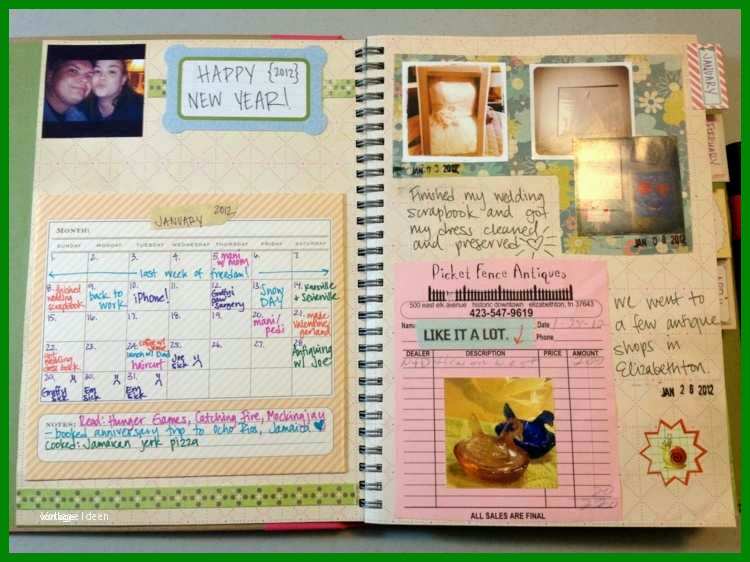 HAPPY {2012}
NEW YEAR!
JANUARY 2012
MONTH:
SUNDAY MONDAY TUESDAY WEDNESDAY THURSDAY FRIDAY SATURDAY
1. 2. 3. 4. 5. 6. 7.
mani w/ mom
last week of freedom!
8. finished wedding scrapbook
9. back to work
10. iPhone!
11.
12. Graffyi paw surgery
13. Snow DAY
14. Knoxville + Sevierville
15. 16. 17. 18. 19.
20. mani/pedi
21. made Valentine garland
22. got wedding dress back
23.
24. coffee w/
lunch w/ Dad
haircut
25. Joe Sick
26. 27.
28. Antiquing w/ Joe
29. Sick
30. Em Sick
31. Em Sick
NOTES: Read: Hunger Games, Catching Fire, Mockingjay
- booked anniversary trip to Ocho Rios, Jamaica
cooked: Jamaican jerk pizza
JANUARY
FEBRUARY
2012
JAN 0 8 2012
Finished my wedding
scrapbook and got
my dress cleaned
and preserved
Picket Fence Antiques
500 east elk avenue historic downtown elizabethton, tn 37643
423-547-9619
Name
Date
LIKE IT A LOT.
Phone
DEALER DESCRIPTION PRICE AMOUNT
ALL SALES ARE FINAL
we went to
a few antique
shops in
Elizabethton.
JAN 2 8 2012